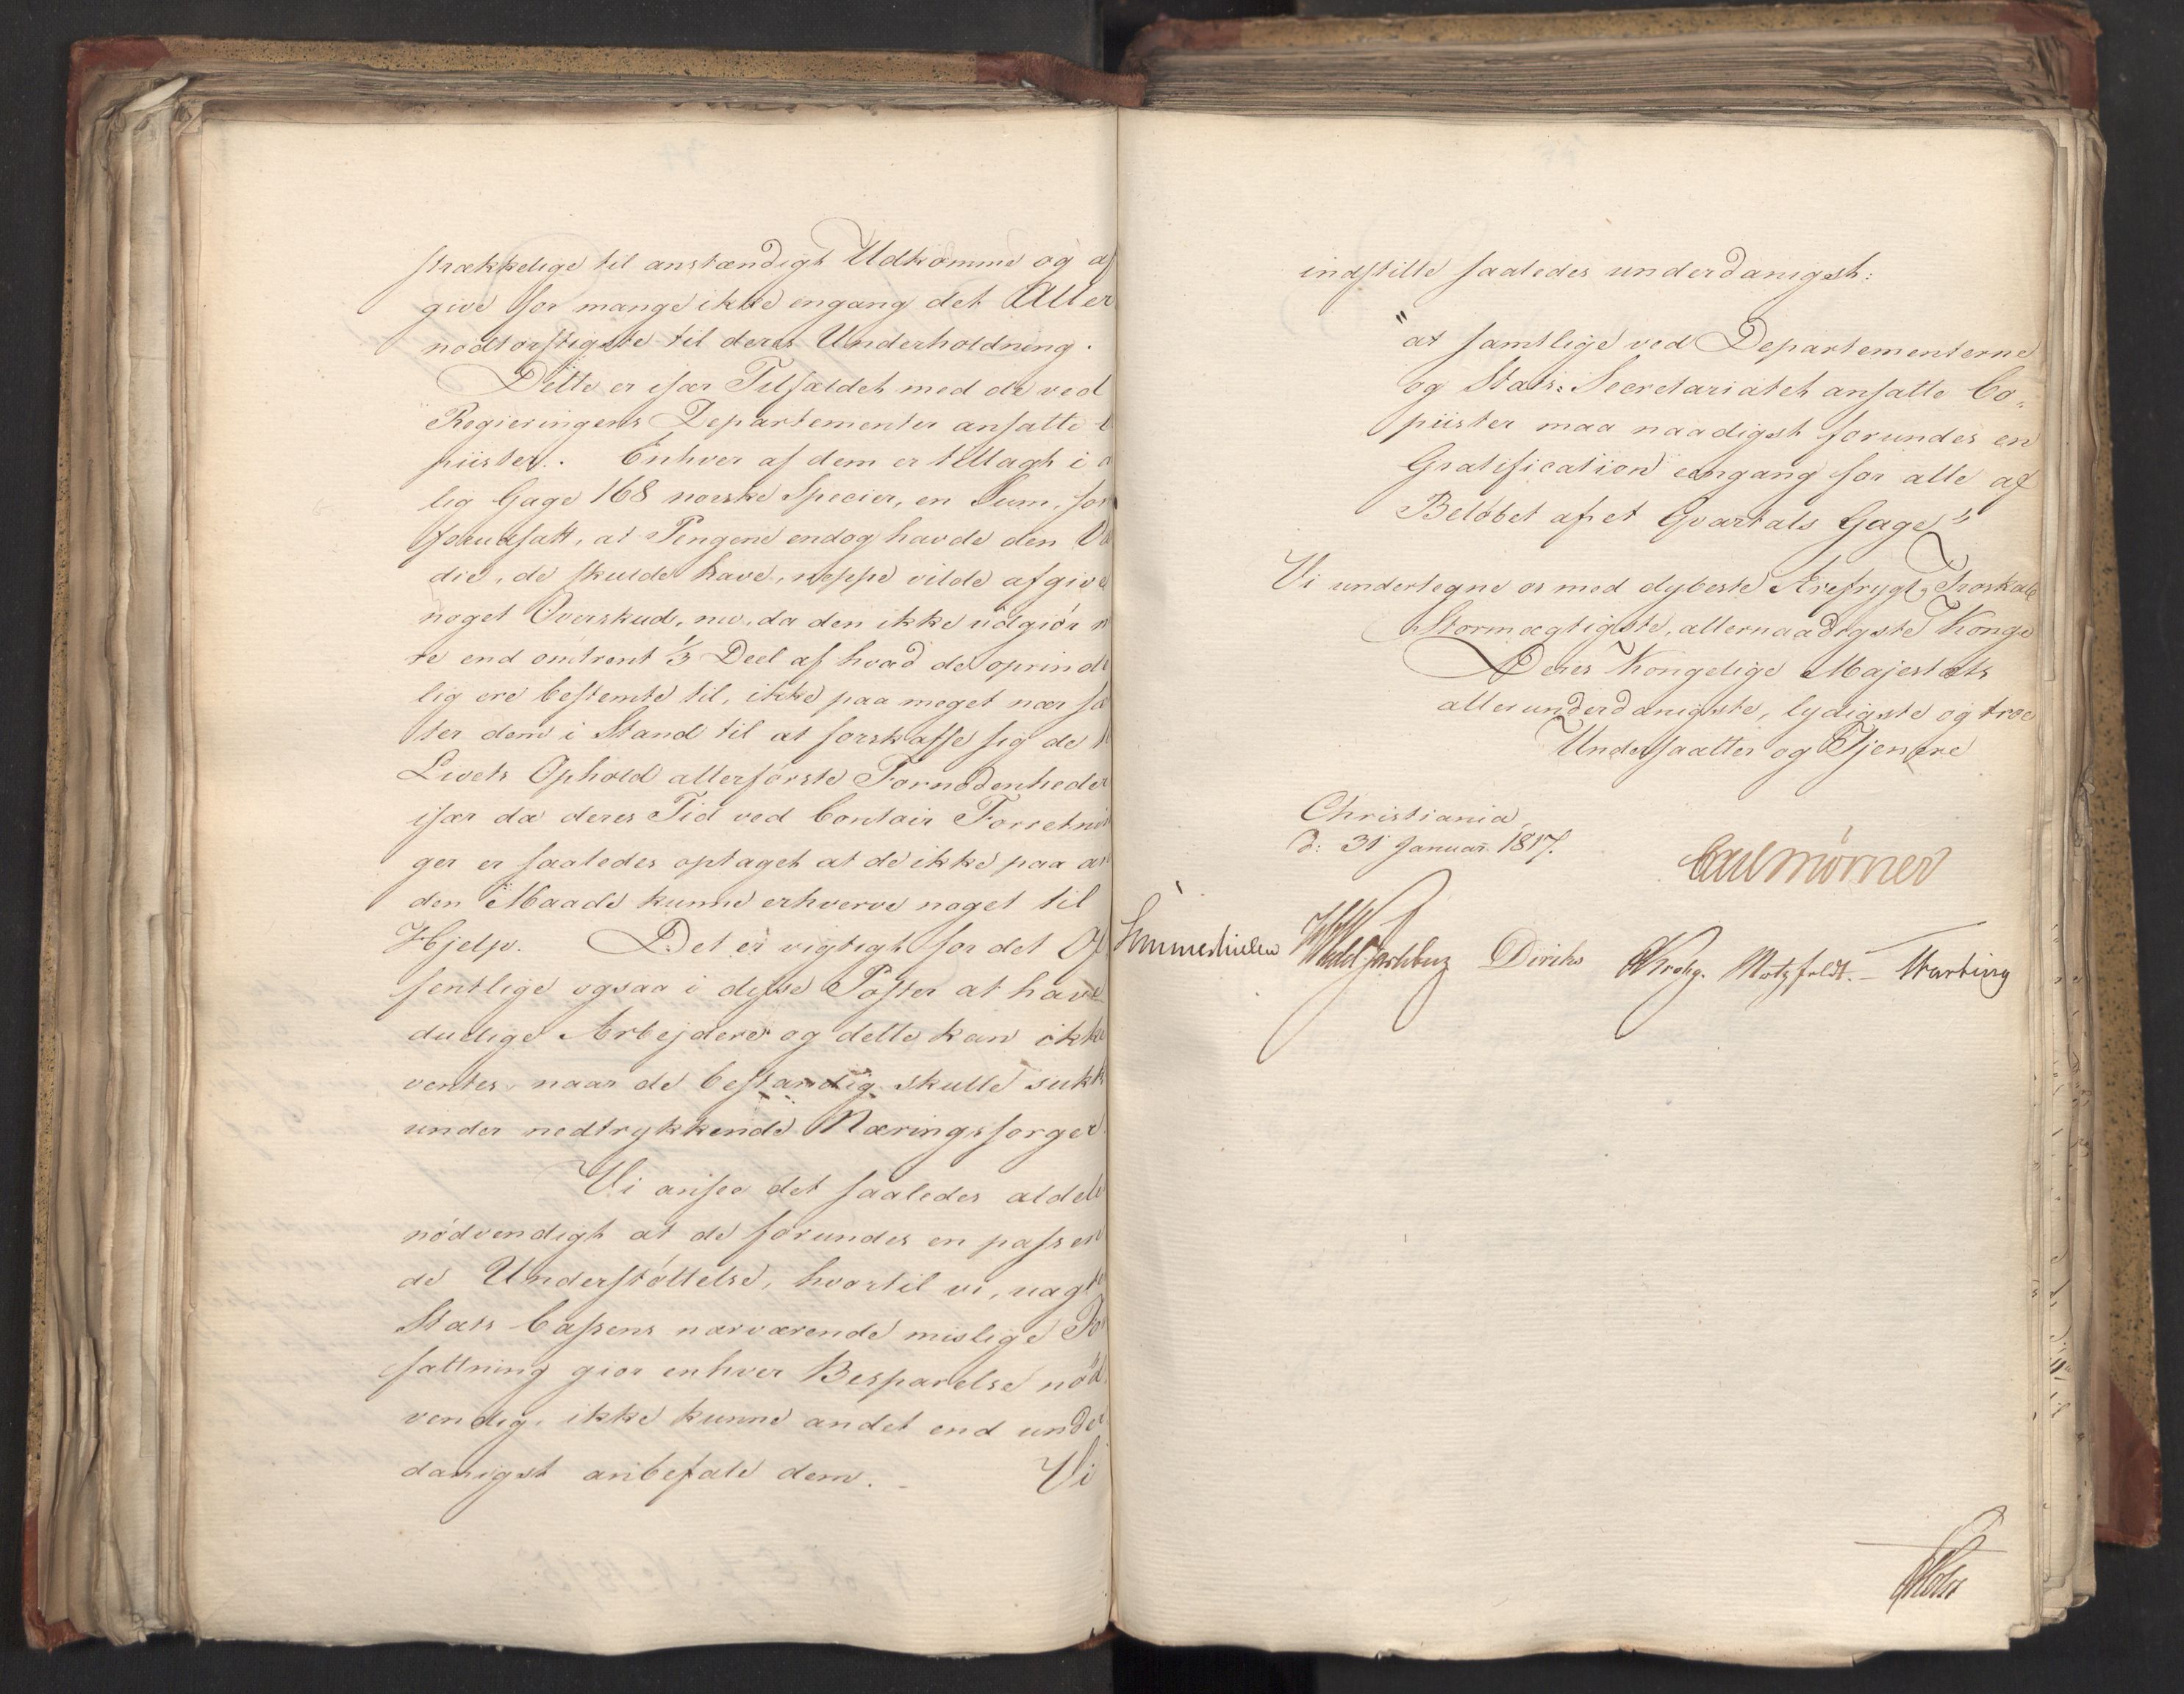 strækkelige til anstændigt Udkomme og af
give for mange ikke engang det Aller
nodtørftigste til deres Underholdning.
Dette er især Tilfældet med de ved
Regieringens Departementer ansatte
piister. Enhver af dem er tillagt i
lig Gage 168 norske Specier, en Sum, som
forudsatt, at Pengene endog havde den Væ
die, de skulde have, neppe vilde afgive
noget Overskud, nu, da den ikke udgiör
re end omtrent 1/3 Deel af hvad de oprinde
lig ere bestemte til, ikke paa meget nær sæ
ter dem i Stand til at forskaffe sig de
Livets Ophold allerførste Fornødenheder
især da deres Tid ved Contoir Forretnin
ger er saaledes optaget at de ikke paa an
den Maade kunne erhverve noget til
Hjelp. Det er vigtigt for det Of
fentlige ogsaa i dysse Poster at have
duelige Arbejdere og dette kan ikke
ventes, naar de bestandig skulle sukke
under nedtrykkende Næringssorger.
Vi ansee det saaledes aldele
nødvendigt at de forundes en passen
de Understøttelse, hvortil vi, uagt
Stats Cassens nærværende mislige For
fattning giør enhver Besparelse nød,
vendig, ikke kunne andet end under
danigst anbefale dem. Vi
indstille saaledes underdanigst:
"at samtlige ved Departementerne
og Stats-Secretariatet ansatte Co-
piister maa naadigst forundes en
Gratification eengang for alle af
Beløbet af et Qvartals Gage"
Vi undertegne os med dybeste Ærefrygt, Troskab
Stormægtigste, allernaadigste Konge
Deres Kongelige Majestæts
allerunderdanigste, lydigste og troe
Undersaatter og Tjenere
Christiania,
d: 31 Januar 1817.
Carl Mörner
Sommerhielm Wedel Jarlsberg Diriks CKrohg. Motzfeldt. - Warbing
Holst